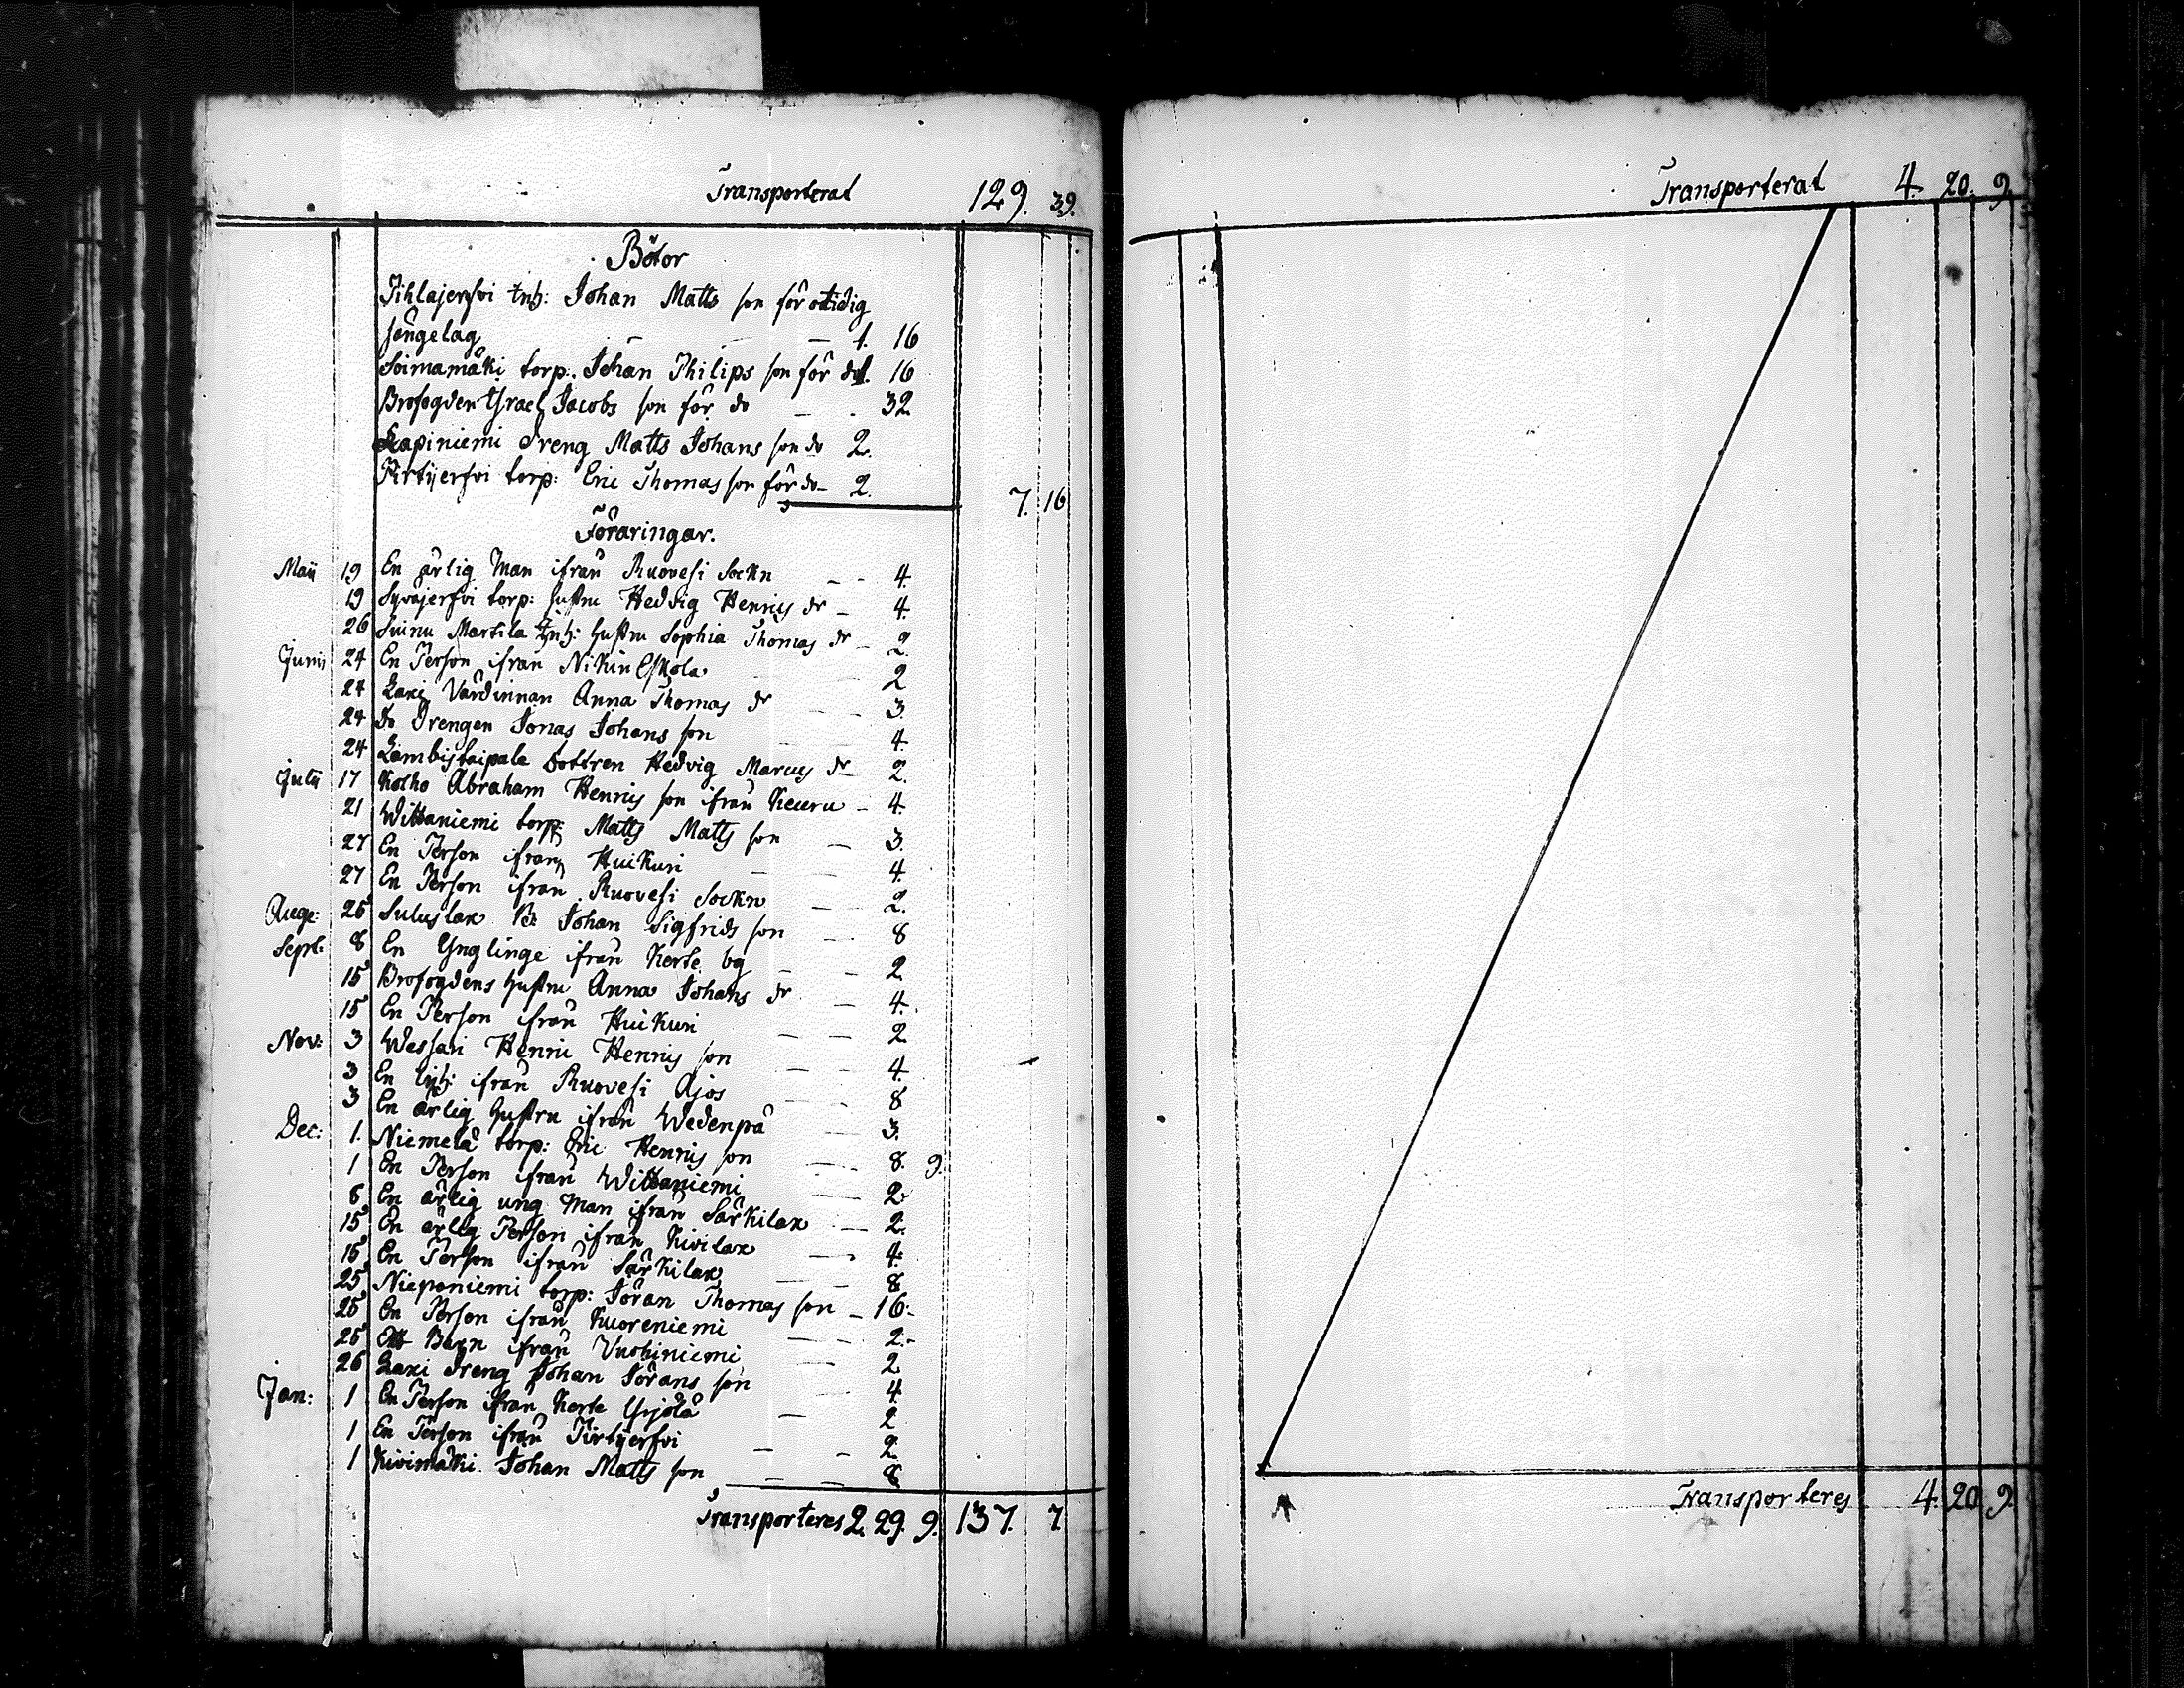 Transporterat 129. 39.
Böter
Pihlajerfvi Inh: Johan Matts son för otidig
sängelag — — 1. 16
Soimamäki torp: Johan Philips son för do 1. 16
Brofogden Israel Jacobs son för do — . 32.
Lapiniemi Dreng Matts Johans son do 2.
Pirtijerfvi torp: Eric Thomas son för do — 2.
7. 16
Föräringar.
Maii 19 En ärlig Man ifrån Ruovesi Sockn — — 4.
19 Syväjerfvi torp: hustru Hedvig Henrics dr — 4.
26 Suinu Martila Inh: hustru Sophia Thomas dr — 2.
Junii 24 En Person ifrån Nikin Eskola — — 2
24 Laxi Värdinnan Anna Thomas dr — — 3.
24 do Drengen Jonas Johans son — — 4.
24 Lambistaipale dottren Hedvig Marcus dr — 2.
Julii 17 Kolho Abraham Henrics son ifrån Keuru — 4.
21 Wittaniemi torp: Matts Matts son — 3.
27 En Person ifrån Huikuri — — 4.
27 En Person ifrån Ruovesi Sockn — 2.
Aug: 25 Suluslax B: Johan Sigfrids son — 8
Sept: 8 En Ynglinge ifrån Kerte by — — 2
15 Brofogdens hustru Anna Johans dr — 4.
15 En Person ifrån Huikuri — — 2
Nov: 3 Wessari Henric Henrics son — — 4.
3 En ifrån Ruovesi Ajos — — 8
3 En ärlig hustru ifrån Wedenpä — 3.
Dec: 1. Niemelä torp: Eric Henrics son — 8. 9.
1 En Person ifrån Wittaniemi — 2.
8 En ärlig ung Man ifrån Särkilax — 2.
15 En ärlig Person ifrån Kivilax — 4.
15 En Person ifrån Särkilax — — 8
25 Nieponiemi torp: Jöran Thomas son — 16.
25 En Person ifrån Kuoreniemi — 2.
25 Ett Barn ifrån Vuohiniemi — 2
26 Laxi Dreng Johan Jörans son — 4
Jan: 1 En Person ifrån Kerte Yrjölä — 2
1 En Person ifrån Pirtijerfvi — — 2
1 Kivimäki Johan Matts son — — 8
Transporteres 2. 29. 9. 137. 7.
Transporterat 4. 20. 9.
Transporteres 4. 20. 9.